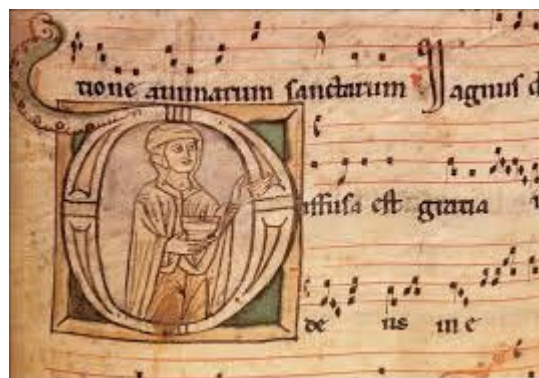 tione animarum sanctarum Magnus d
Diffusa est gratia i
de us in e